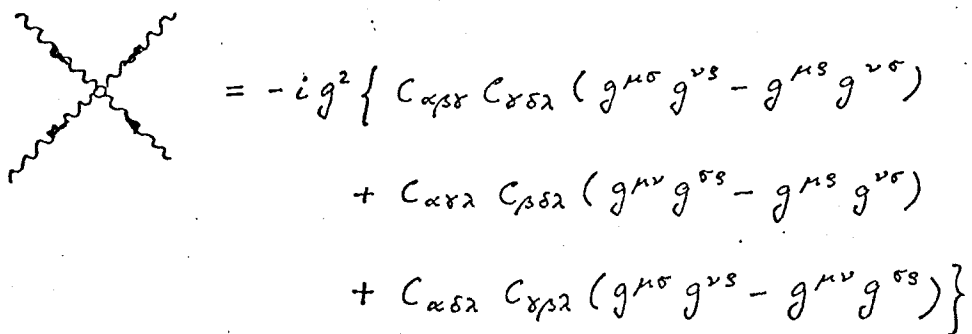 = - i g² { C_{αβγ} C_{γδλ} ( g^{μσ} g^{νρ} - g^{μρ} g^{νσ} )
+ C_{αγλ} C_{βδλ} ( g^{μν} g^{σρ} - g^{μρ} g^{νσ} )
+ C_{αδλ} C_{γβλ} ( g^{μσ} g^{νρ} - g^{μν} g^{σρ} ) }